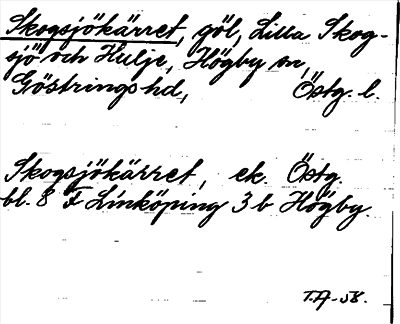 Skogsjökärret, göl, Lilla Skog-
sjö och Hulje, Högby sn,
Göstrings hd, Östg. l.
Skogsjökärret, ek. Östg.
bl. 8 F Linköping 3 b Högby.
T.A-58.